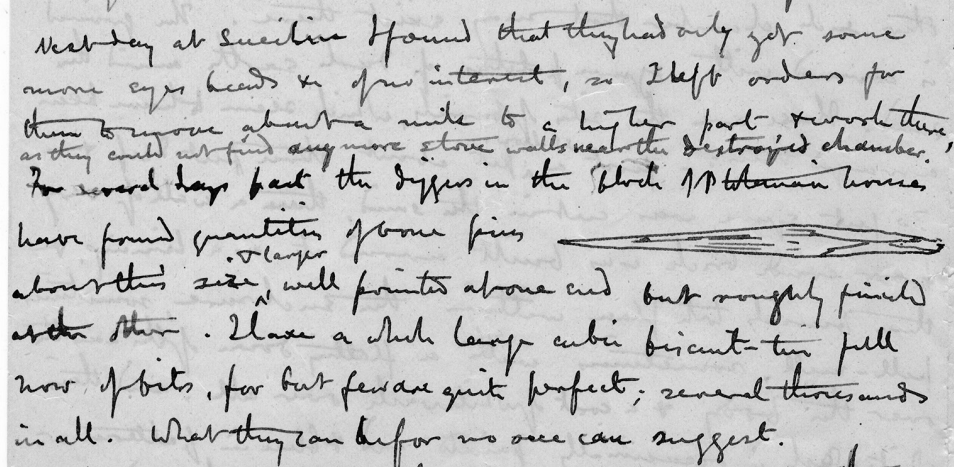 Yesterday at I found that they had only got some
more eyes beads &c of no interest, so I left orders for
them to move about a mile to a higher part & work there,
as they could not find any more stone walls near the destroyed chamber.
For several days past the diggers in the block of Ptolemaic houses
have found quantities of bone pins
about this size, & larger well pointed at one end but roughly finished
at the other. I have a whole large cabin biscuit-tin full
now of bits, for but few are quite perfect; several thousands
in all. What they can be for no one can suggest.